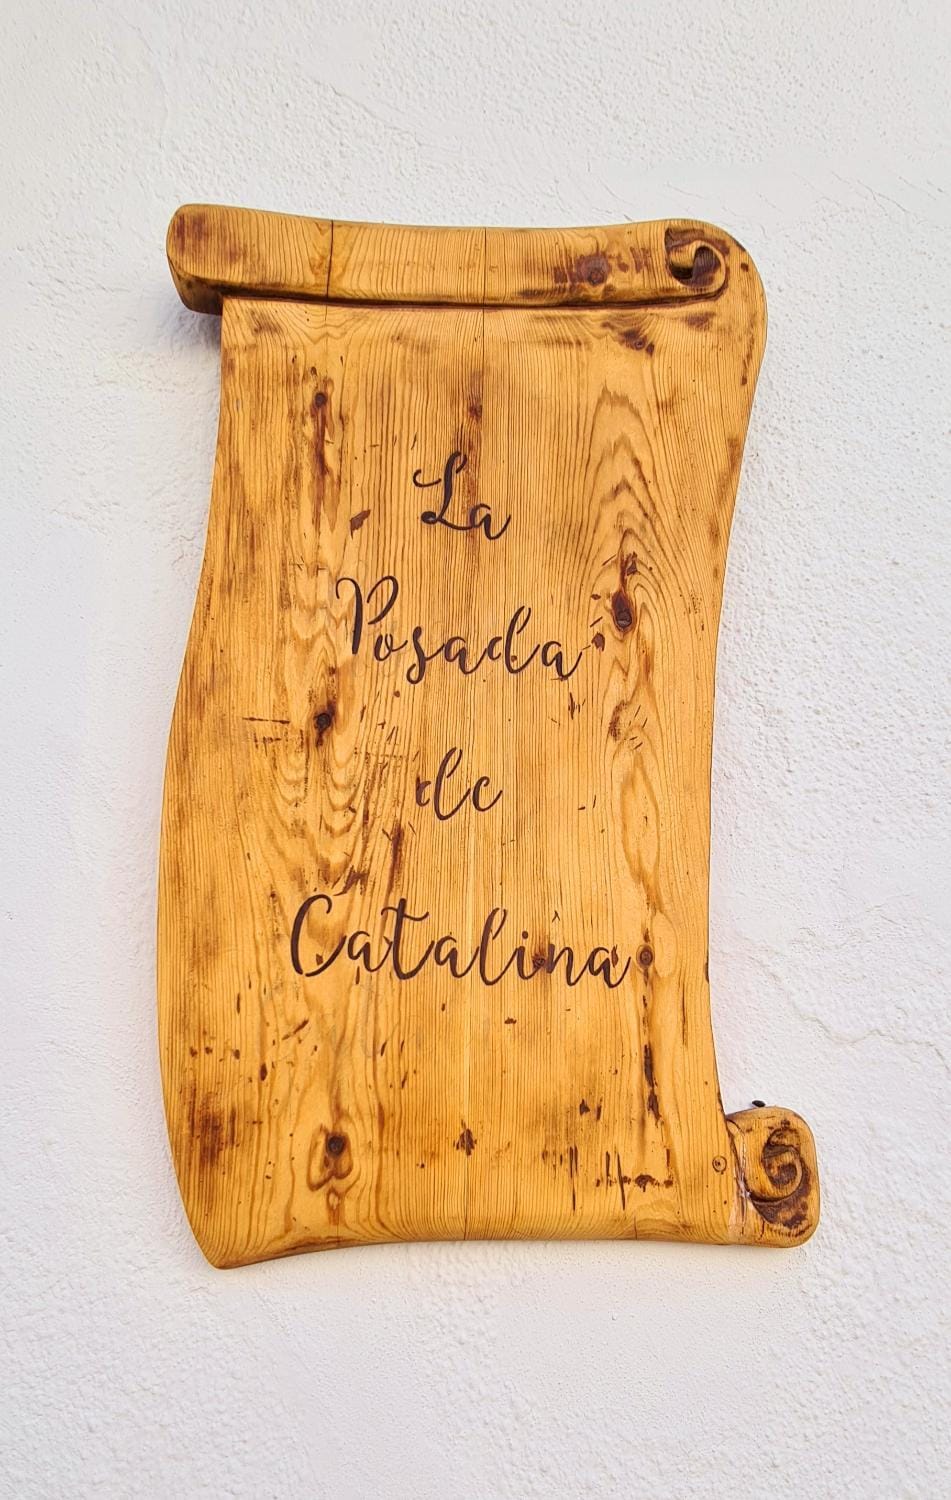 La
Posada
de
Catalina